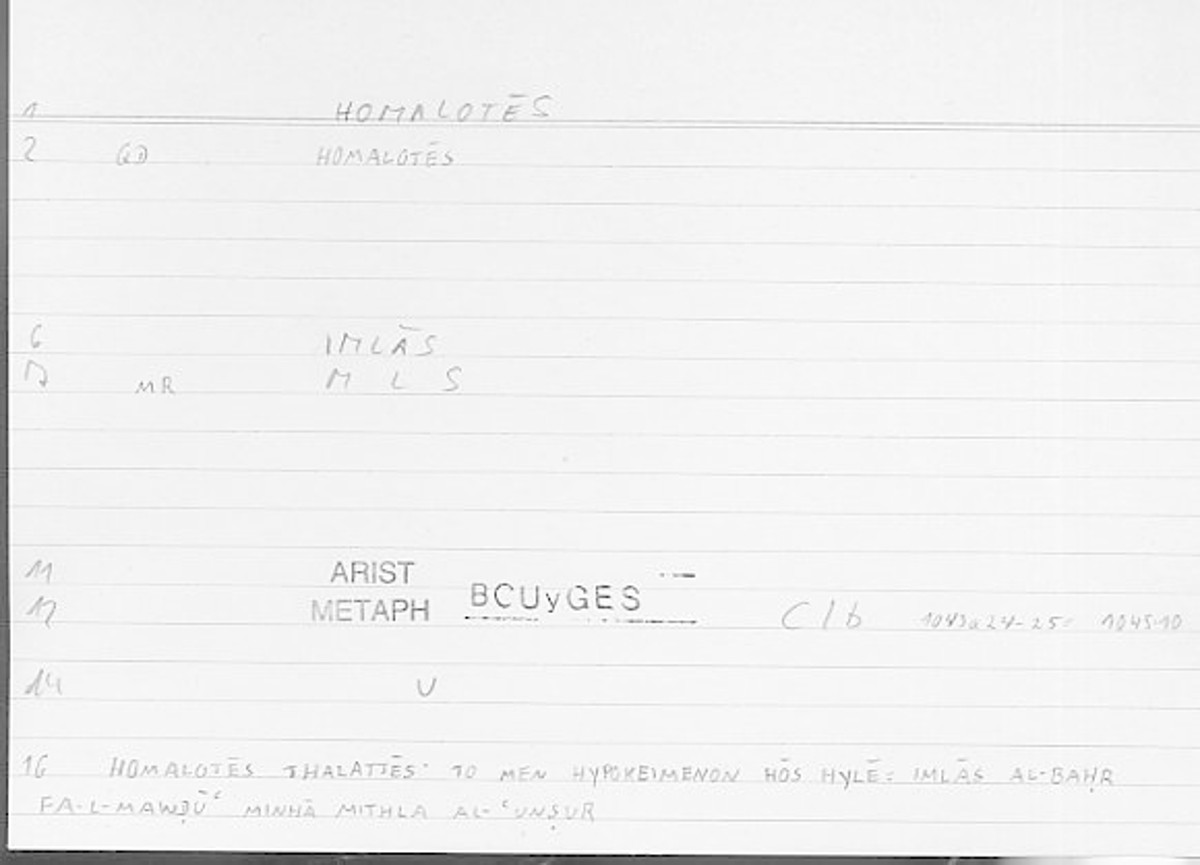 1 HOMALOTĒS
2 GD HOMALOTĒS
6 IMLĀS
7 MR M L S
11 ARIST
12 METAPH BCUyGES C/b 1043a24-25= 1045.10
14 U
16 HOMALOTĒS THALATTĒS· TO MEN HYPOKEIMENON HŌS HYLĒ: IMLĀS AL-BAḤR
FA-L-MAWḌŪʿ MINHĀ MITHLA AL-ʿUNṢUR